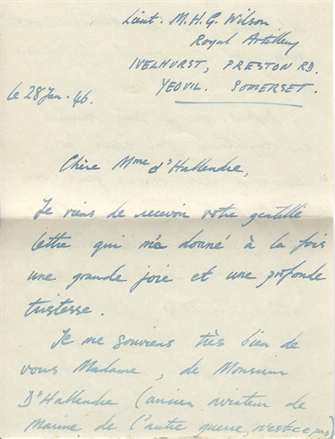 Lieut. M.H.G. Wilson
Royal Artillery
IVELHURST, PRESTON RD.
YEOVIL. SOMERSET.
le 28 Jan. 46.
Chère Mme d'Hallendre,
Je viens de recevoir votre gentille
lettre qui m'a donné à la fois
une grande joie et une profonde
tristesse.
Je me souviens très bien de
vous Madame, de Monsieur
D'Hallendre (ancien de
Marine de l'autre guerre, n'est ce pas)